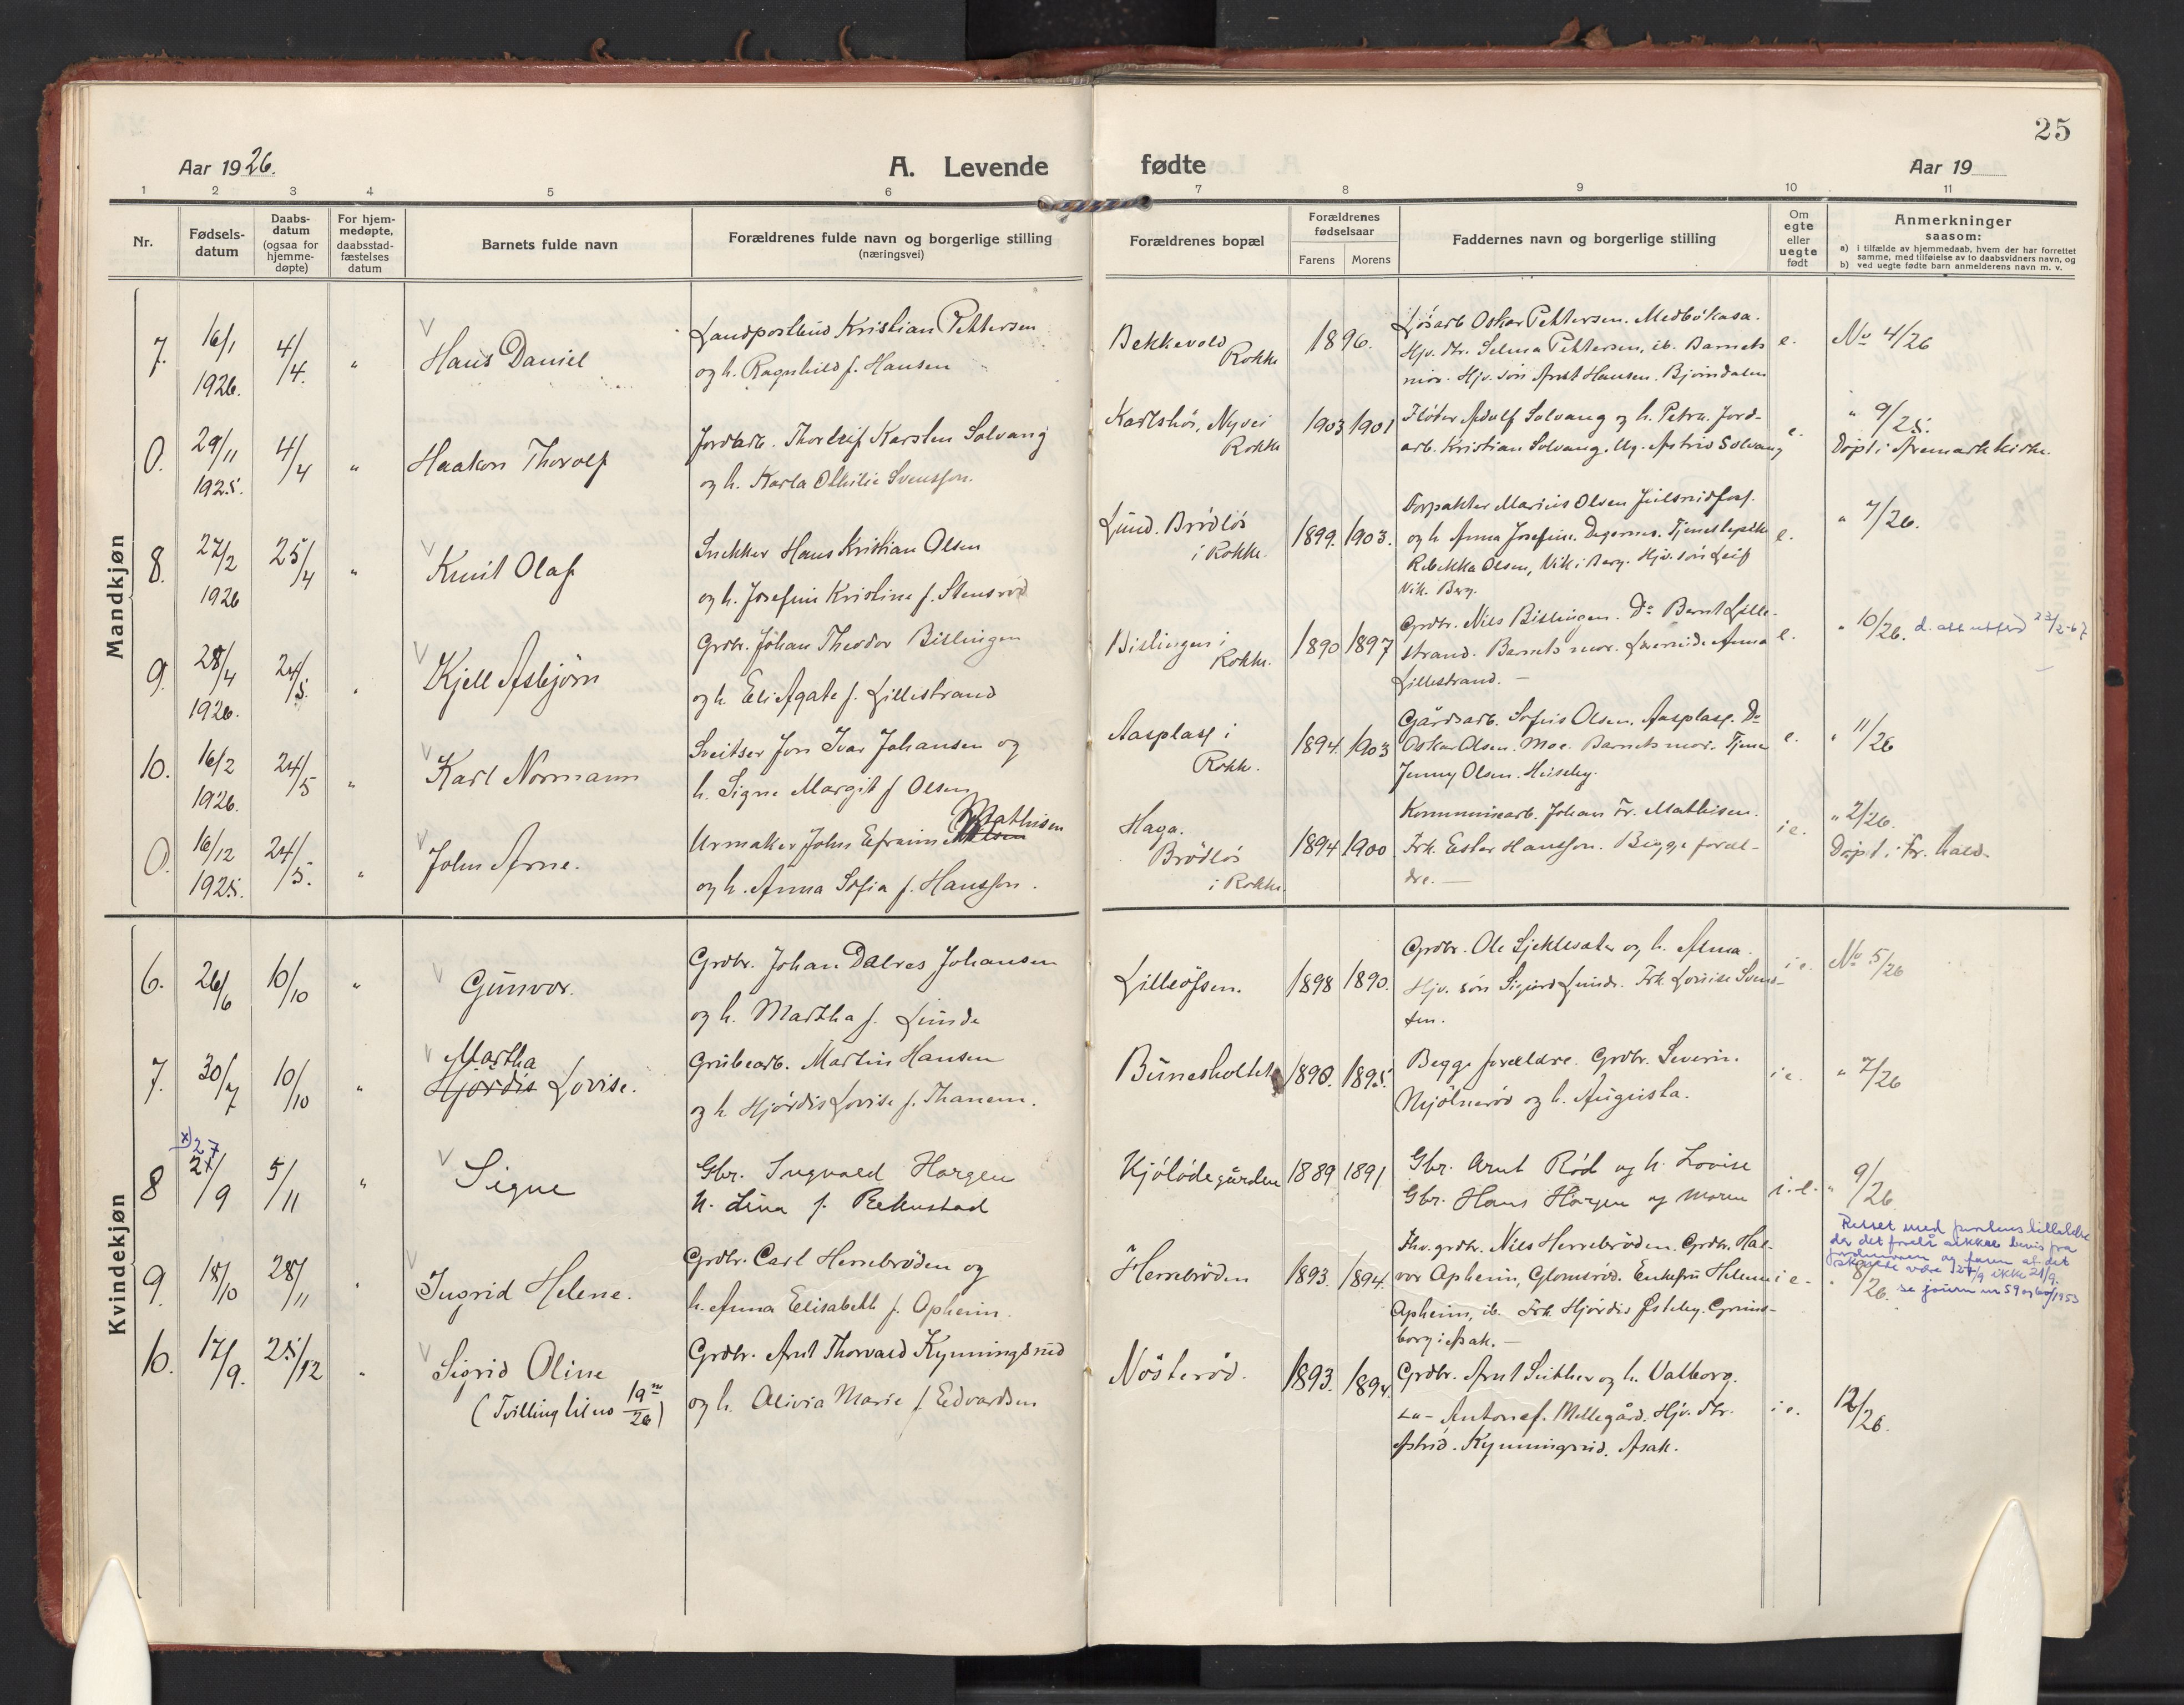 25
Aar 1926.
A. Levende fødte
Aar 19
1 2 3 4 5 6 7 8 9 10 11
Nr.
Fødsels-
datum
Daabs-
datum
(ogsaa for
hjemme-
døpte)
For hjem-
medøpte,
daabsstad-
fæstelses
datum
Barnets fulde navn
Forældrenes fulde navn og borgerlige stilling
(næringsvei)
Forældrenes bopæl
Forældrenes
fødselsaar
Farens Morens
Faddernes navn og borgerlige stilling
Om
egte
eller
uegte
født
Anmerkninger
saasom:
a) i tilfælde av hjemmedaab, hvem der har forrettet
samme, med tilføielse av to daabsvidners navn, og
b) ved uegte fødte barn anmelderens navn m. v.
Mandkjøn
7. 16/1 1926. 4/4. "
Hans Daniel
Landpostbud Kristian Pettersen
og h. Ragnhild f. Hansen
Bekkevold
Rokke
1896.
Løsarb Oskar Pettersen. Medbökasa.
Hjv. dtr. Selma Pettersen, ib. Barnets
mor. Hjv. søn Arnt Hansen. Bjørndalen
e.
No 4/26
0. 29/11 1925. 4/4 "
Haakon Thorolf
Jordarb. Thorleif Karsten Solvang
og h. Karla Othilie Svensson.
Karlshøi, Nyvei
Rokke
1903 1901
Fløter Adolf Solvang og h. Petra. Jord-
arb. Kristian Solvang. Ug. Astrid Solvang
e.
" 9/25.
Døpt i Aremark kirke.
8. 27/2 1926 25/4 "
Knut Olaf
Snekker Hans Kristian Olsen
og h. Josefine Kristine f. Stensrød
Lund. Brödlös
i Rokke.
1899. 1903.
Forpakter Marius Olsen
og h Anna Josefine. Degernes.
Rebekka Olsen, Vik i Berg. Hjv. søn Leif
Vik. Berg.
e.
" 7/26.
9. 28/4 1926. 24/5. "
Kjell Asbjørn
Grdbr. Johan Theodor Bislingen
og h. Eli Agate f. Lillestrand
Bislingen i
Rokke.
1890 1897
Grdbr. Nils Bislingen. Do Bernt Lille-
strand. Barnets mor. Anna
Lillestrand. —
e.
" 10/26. d. att utferd 23/2-67
10. 16/2 1926. 24/5 "
Karl Normann
Sveitser Jon Ivar Johansen og
h. Signe Margit f Olsen
Aasplass i
Rokke.
1894. 1903
Gårdsarb. Sofus Olsen. Aasplass. Do
Oskar Olsen. Moe. Barnets mor. Tjener
Jenny Olsen. Huseby.
e.
" 11/26
0. 16/12 1925. 24/5. "
John Arne.
Urmaker John Efraim Mathisen
og h. Anna Sofia f. Hansson.
Haga.
Brödlös
i Rokke.
1894 1900
Kommunearb. Johan Fr. Mathisen.
Frk. Ester Hansson. Begge foræl-
dre. —
i e.
" 2/26.
Døpt i Fr. hald.
Kvindekjøn
6. 26/6 10/10 "
Gunvor.
Grdbr. Johan Dalres Johansen
og h. Martha f. Lunde
Lilleöfsen.
1898 1890.
Grdbr. Ole Sjeklesater og h. Anna.
Hjv. søn Sigurd Lunde. Frk. Lovise Svend-
sen.
i e.
No 5/26
7. 30/7 10/10 "
Martha
Hjördis Lovise.
Grubearb. Martin Hansen
og h Hjördis Lovise f. Thanem.
Bunesholtet
1890. 1895.
Begge forældre. Grdbr. Severin
Mjölnerød og h. Augusta.
i e.
" 7/26
x) 27
8 21/9 5/11 "
Signe
Gbr. Ingvald Horgen
h. Lina f. Rekustad
Kjölödegården
1889 1891
Gbr. Arnt Röd og h. Lovise
Gbr. Hans Horgen og Maren
i.e.
" 9/26
Rettet med
da det forelå bevis fra
og faren at det
skulde være 27/9 ikke 21/9.
se journ nr 59 og 60/1953
9. 18/10 28/11 "
Ingrid Helene.
Grdbr. Carl Herrebröden og
h. Anna Elisabeth f. Opheim.
Herrebröden
1893. 1894.
Fhv. grdbr. Nils Herrebröden. Grdbr. Hal-
vor Opheim, Glomsröd. Enkefru Helene
Opheim, ib. Frk. Hjördis Østeby. Gruns-
borg i Asak. —
i e.
" 8/26.
10. 17/9. 25/12 "
Sigrid Oline
(Tvilling til no 19m/26)
Grdbr. Arnt Thorvald Kynningsrud
og h. Olivia Marie f. Edvardsen
Nösteröd.
1893. 1894.
Grdbr. Arnt Suther og h. Valborg.
Antonef. Mellegård. Hjv. dtr.
Astrid. Kynningsrud. Asak.
i e.
12/26.